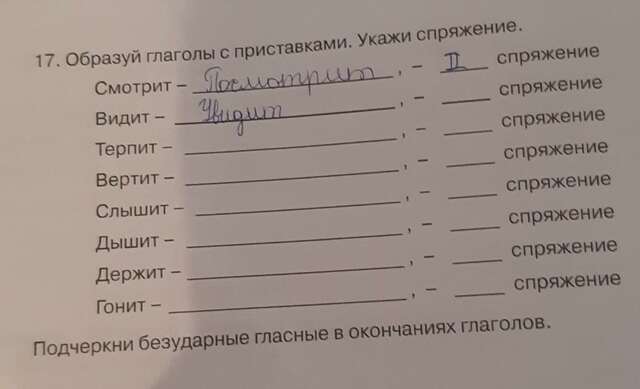 17. Образуй глаголы с приставками. Укажи спряжение.
Смотрит – Посмотрит, – II спряжение
Видит – Увидит, – ____ спряжение
Терпит – ____, – ____ спряжение
Вертит – ____, – ____ спряжение
Слышит – ____, – ____ спряжение
Дышит – ____, – ____ спряжение
Держит – ____, – ____ спряжение
Гонит – ____, – ____ спряжение
Подчеркни безударные гласные в окончаниях глаголов.